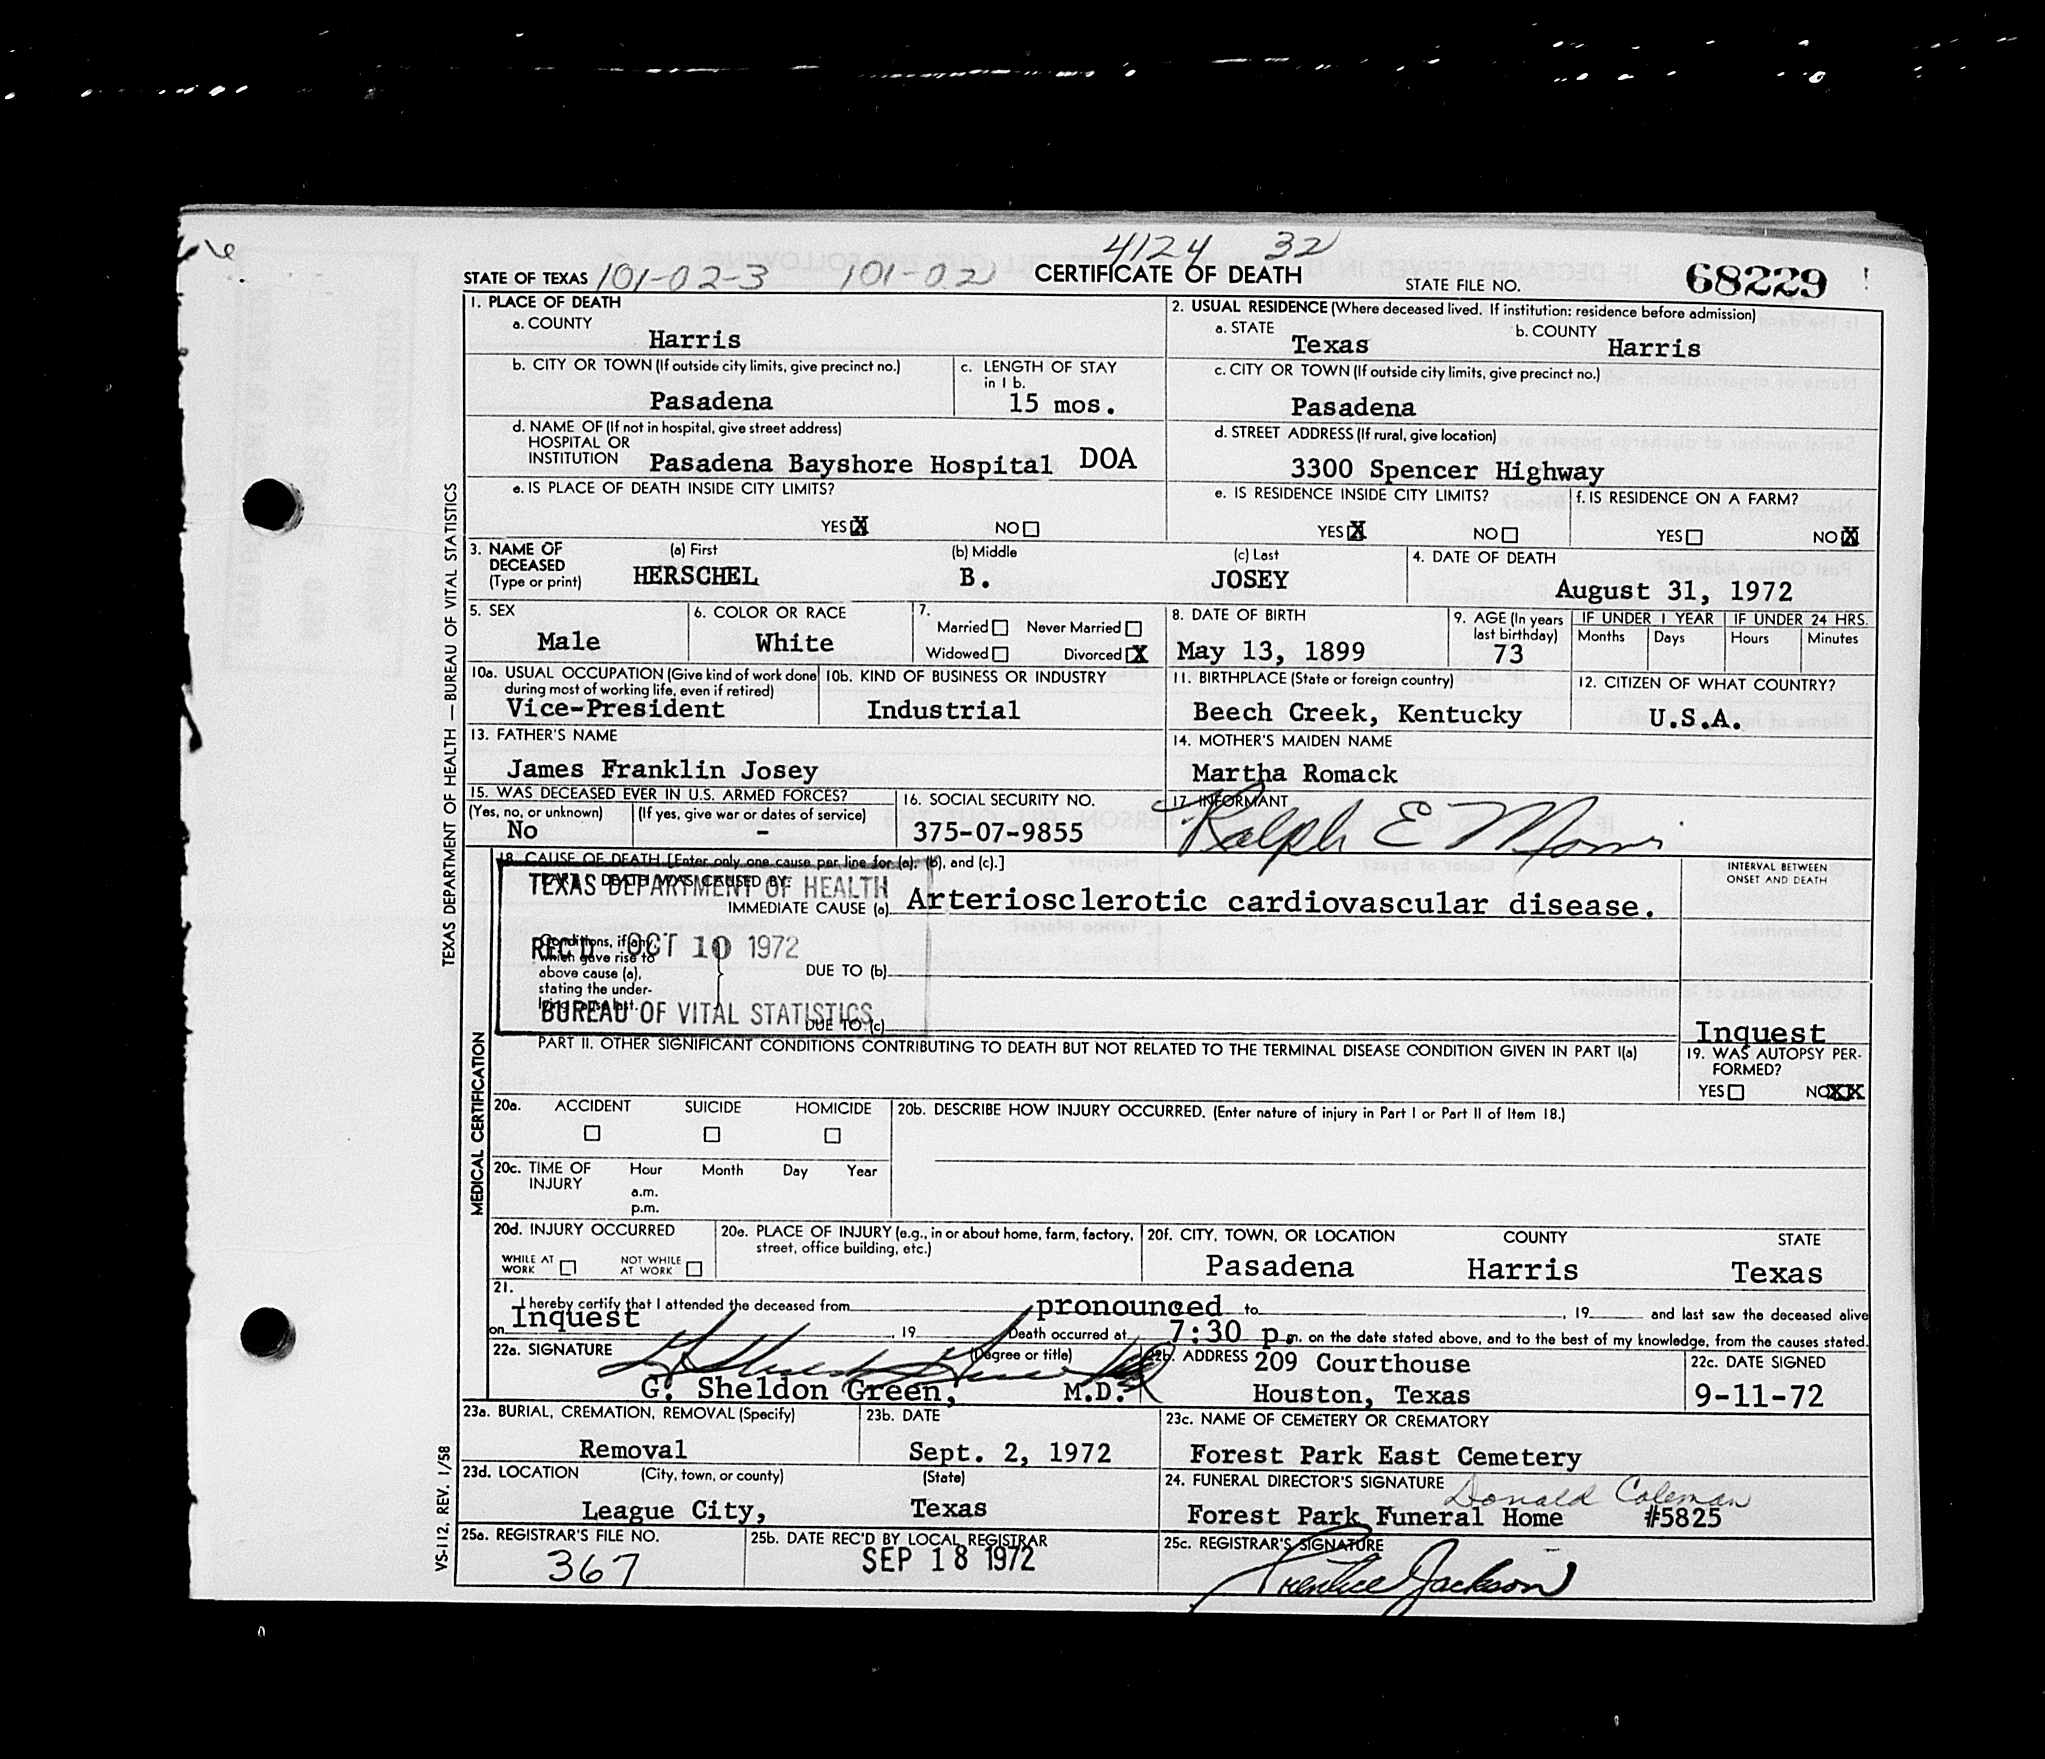 4124 32
STATE OF TEXAS 101-02-3 101-02 CERTIFICATE OF DEATH STATE FILE NO. 68229
1. PLACE OF DEATH
a. COUNTY
Harris
2. USUAL RESIDENCE (Where deceased lived. If institution: residence before admission)
a. STATE b. COUNTY
Texas Harris
b. CITY OR TOWN (If outside city limits, give precinct no.)
Pasadena
c. LENGTH OF STAY
in 1 b.
15 mos.
c. CITY OR TOWN (If outside city limits, give precinct no.)
Pasadena
d. NAME OF (If not in hospital, give street address)
HOSPITAL OR
INSTITUTION Pasadena Bayshore Hospital DOA
d. STREET ADDRESS (If rural, give location)
3300 Spencer Highway
e. IS PLACE OF DEATH INSIDE CITY LIMITS?
YES X NO
e. IS RESIDENCE INSIDE CITY LIMITS?
YES X NO
f. IS RESIDENCE ON A FARM?
YES NO X
3. NAME OF DECEASED (Type or print)
(a) First (b) Middle (c) Last
HERSCHEL B. JOSEY
4. DATE OF DEATH
August 31, 1972
5. SEX
Male
6. COLOR OR RACE
White
7.
Married Never Married
Widowed Divorced X
8. DATE OF BIRTH
May 13, 1899
9. AGE (In years
last birthday)
73
IF UNDER 1 YEAR
Months Days
IF UNDER 24 HRS.
Hours Minutes
10a. USUAL OCCUPATION (Give kind of work done
during most of working life, even if retired)
Vice-President
10b. KIND OF BUSINESS OR INDUSTRY
Industrial
11. BIRTHPLACE (State or foreign country)
Beech Creek, Kentucky
12. CITIZEN OF WHAT COUNTRY?
U.S.A.
13. FATHER'S NAME
James Franklin Josey
14. MOTHER'S MAIDEN NAME
Martha Romack
15. WAS DECEASED EVER IN U.S. ARMED FORCES?
(Yes, no, or unknown) (If yes, give war or dates of service)
No -
16. SOCIAL SECURITY NO.
375-07-9855
17. INFORMANT
Ralph E
18. CAUSE OF DEATH [Enter only one cause per line for (a), (b), and (c).]
INTERVAL BETWEEN
ONSET AND DEATH
TEXAS DEPARTMENT OF HEALTH
REC'D OCT 10 1972
BUREAU OF VITAL STATISTICS
IMMEDIATE CAUSE (a) Arteriosclerotic cardiovascular disease.
Conditions, if any,
which gave rise to
above cause (a),
stating the under-
lying cause last.
DUE TO (b)
DUE TO (c)
PART II. OTHER SIGNIFICANT CONDITIONS CONTRIBUTING TO DEATH BUT NOT RELATED TO THE TERMINAL DISEASE CONDITION GIVEN IN PART I(a)
Inquest
19. WAS AUTOPSY PER-
FORMED?
YES NO XX
20a. ACCIDENT SUICIDE HOMICIDE
20b. DESCRIBE HOW INJURY OCCURRED. (Enter nature of injury in Part I or Part II of Item 18.)
20c. TIME OF
INJURY
Hour Month Day Year
a.m.
p.m.
20d. INJURY OCCURRED
WHILE AT WORK NOT WHILE AT WORK
20e. PLACE OF INJURY (e.g., in or about home, farm, factory,
street, office building, etc.)
20f. CITY, TOWN, OR LOCATION COUNTY STATE
Pasadena Harris Texas
21.
I hereby certify that I attended the deceased from pronounced to , 19 and last saw the deceased alive
on Inquest , 19 Death occurred at 7:30 p m. on the date stated above, and to the best of my knowledge, from the causes stated.
22a. SIGNATURE (Degree or title)
G. Sheldon Green, M.D.
22b. ADDRESS 209 Courthouse
Houston, Texas
22c. DATE SIGNED
9-11-72
23a. BURIAL, CREMATION, REMOVAL (Specify)
Removal
23b. DATE
Sept. 2, 1972
23c. NAME OF CEMETERY OR CREMATORY
Forest Park East Cemetery
23d. LOCATION (City, town, or county) (State)
League City, Texas
24. FUNERAL DIRECTOR'S SIGNATURE Donald Coleman
Forest Park Funeral Home #5825
25a. REGISTRAR'S FILE NO.
367
25b. DATE REC'D BY LOCAL REGISTRAR
SEP 18 1972
25c. REGISTRAR'S SIGNATURE
Prentice Jackson
TEXAS DEPARTMENT OF HEALTH — BUREAU OF VITAL STATISTICS
MEDICAL CERTIFICATION
VS-112, REV. 1/58